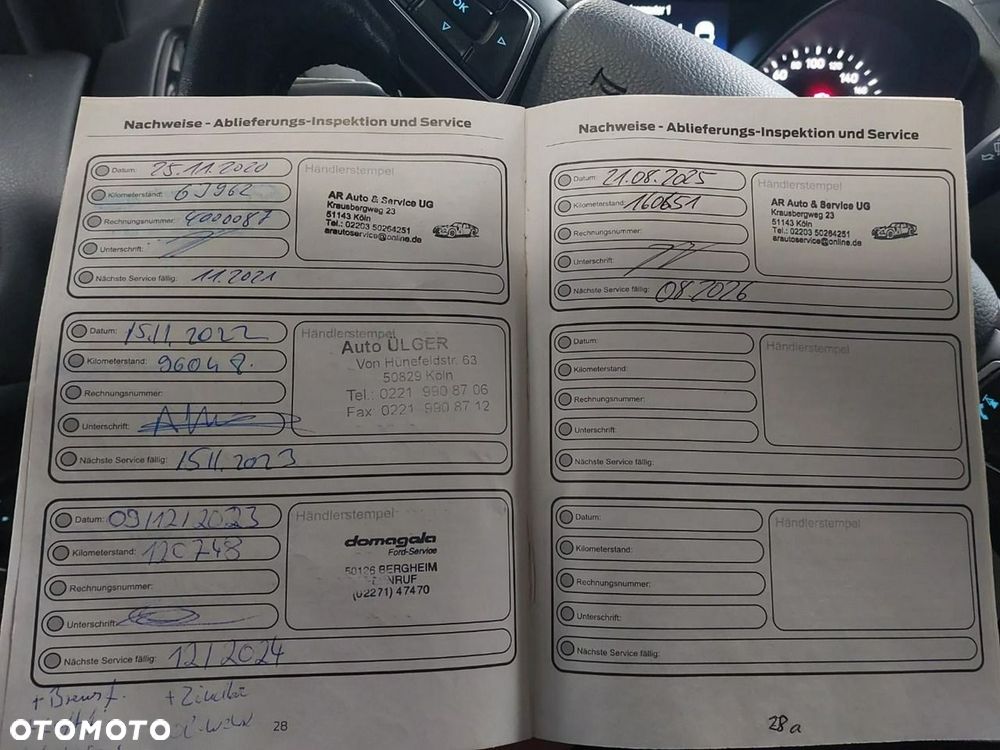 OK
60 80 100 120 140 160
Nachweise - Ablieferungs-Inspektion und Service
Datum: 25.11.2020
Kilometerstand:
Rechnungsnummer: 4000087
Unterschrift:
Nächste Service fällig: 11.2021
Händlerstempel
AR Auto & Service UG
Krausbergweg 23
51143 Köln
Tel.: 02203 50264251
arautoservice@online.de
Datum: 15.11.2022
Kilometerstand: 96048.
Rechnungsnummer:
Unterschrift:
Nächste Service fällig: 15.11.2023
Händlerstempel
Auto ÜLGER
Von Hünefeldstr. 63
50829 Köln
Tel.: 0221 990 87 06
Fax: 0221 990 87 12
Datum: 09/12/2023
Kilometerstand: 120748
Rechnungsnummer:
Unterschrift:
Nächste Service fällig: 12/2024
Händlerstempel
domagala
Ford-Service
50126 BERGHEIM
NRUF
(02271) 47470
28
Nachweise - Ablieferungs-Inspektion und Service
Datum: 21.08.2025
Kilometerstand: 160651
Rechnungsnummer:
Unterschrift:
Nächste Service fällig: 08.2026
Händlerstempel
AR Auto & Service UG
Krausbergweg 23
51143 Köln
Tel.: 02203 50264251
arautoservice@online.de
Datum:
Kilometerstand:
Rechnungsnummer:
Unterschrift:
Nächste Service fällig:
Händlerstempel
Datum:
Kilometerstand:
Rechnungsnummer:
Unterschrift:
Nächste Service fällig:
Händlerstempel
28a
OTOMOTO